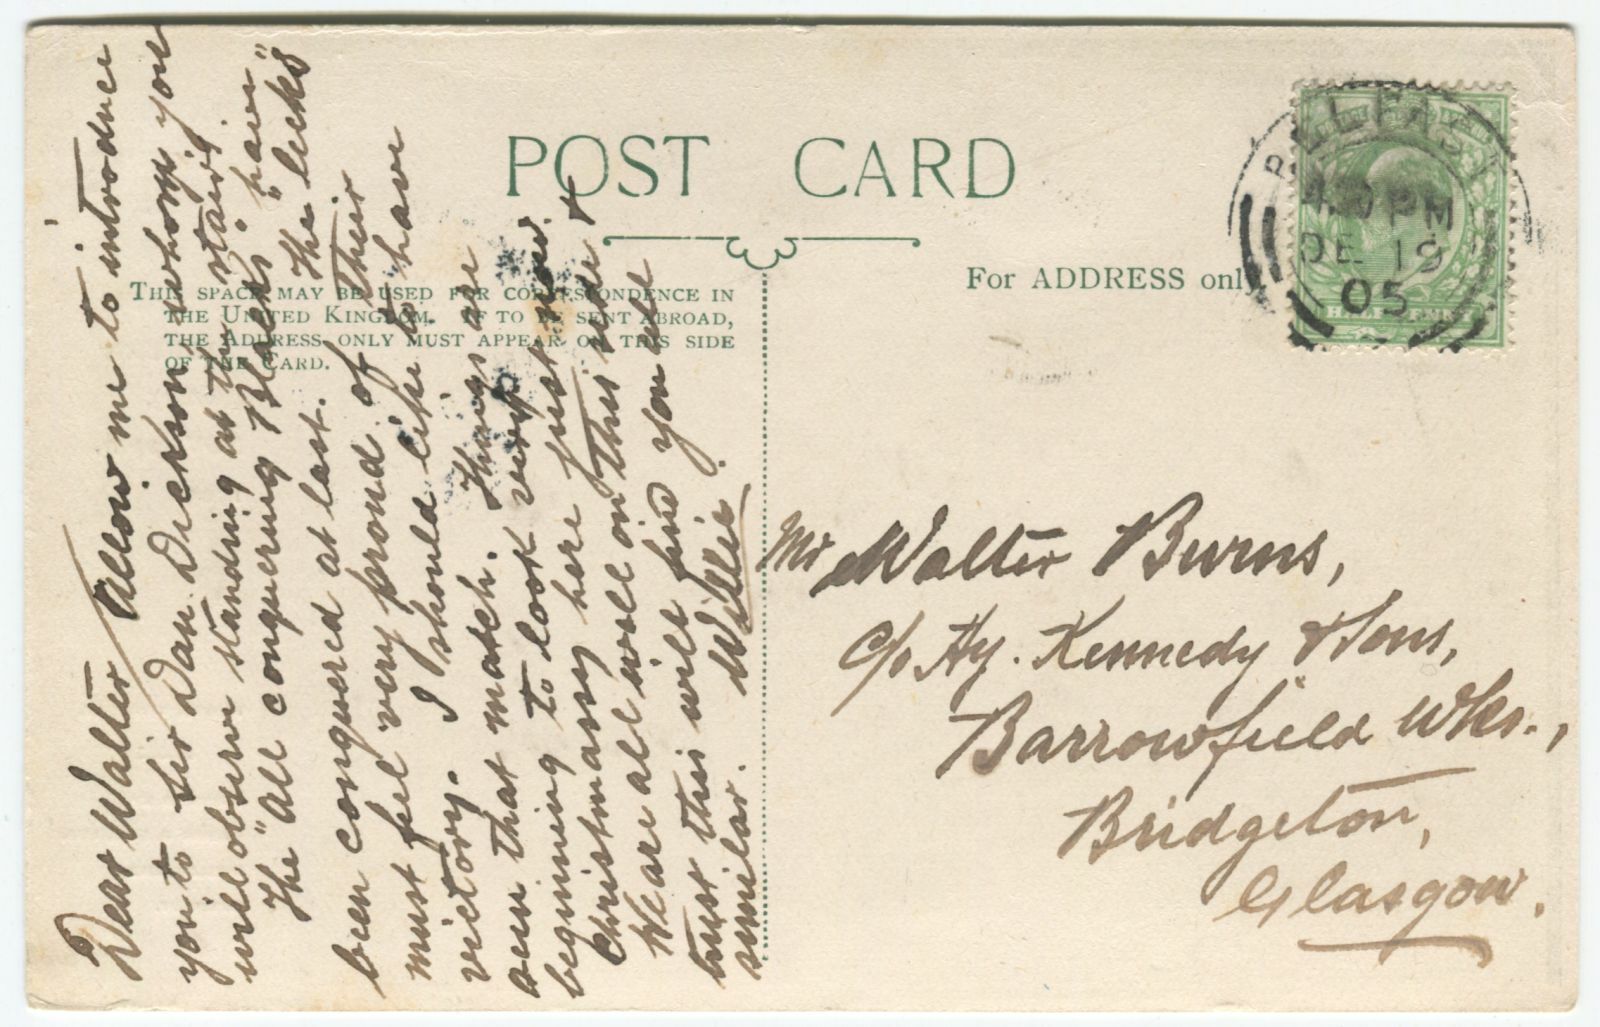 POST CARD
THIS SPACE MAY BE USED FOR CORRESPONDENCE IN
THE UNITED KINGDOM. IF TO BE SENT ABROAD,
THE ADDRESS ONLY MUST APPEAR ON THIS SIDE
OF THE CARD.
For ADDRESS only.
BELFAST
PM
DE 19
05
Dear Walter Allow me to introduce
you to Sir Dan Dickson whom you
will observe standing at the stairs.
The "All conquering Blacks" have
been conquered at last. The "lecks"
must feel very proud of their
victory. I should like to have
seen that match. Things are
beginning to look very
Christmassy here just now.
We are all well on this side &
trust this will find you all
similar. Willie
Mr Walter Burns,
c/o Hy. Kennedy & Sons,
Barrowfield Wks.,
Bridgeton,
Glasgow.